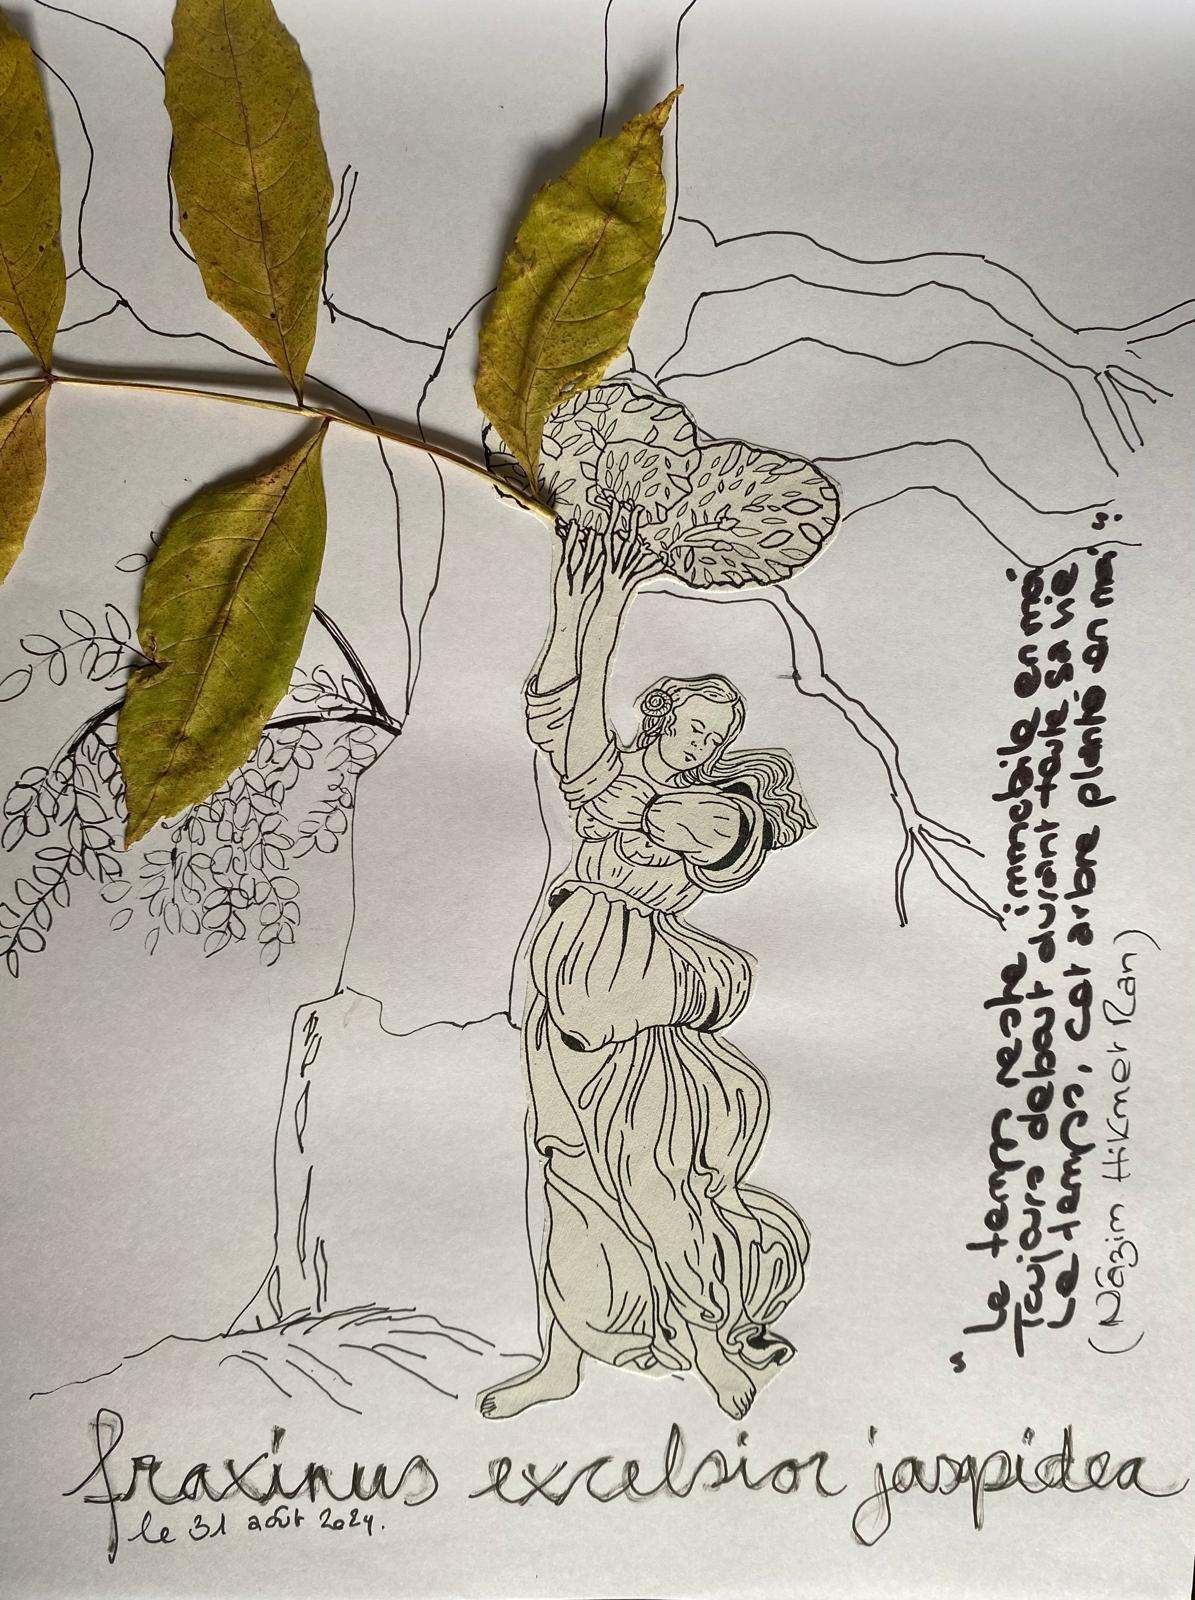 "Le temps reste immobile en moi
Toujours debout durant toute sa vie
Le temps, cet arbre planté en moi".
(Nâzim Hikmer Ran)
fraxinus excelsior jaspidea
le 31 août 2024.